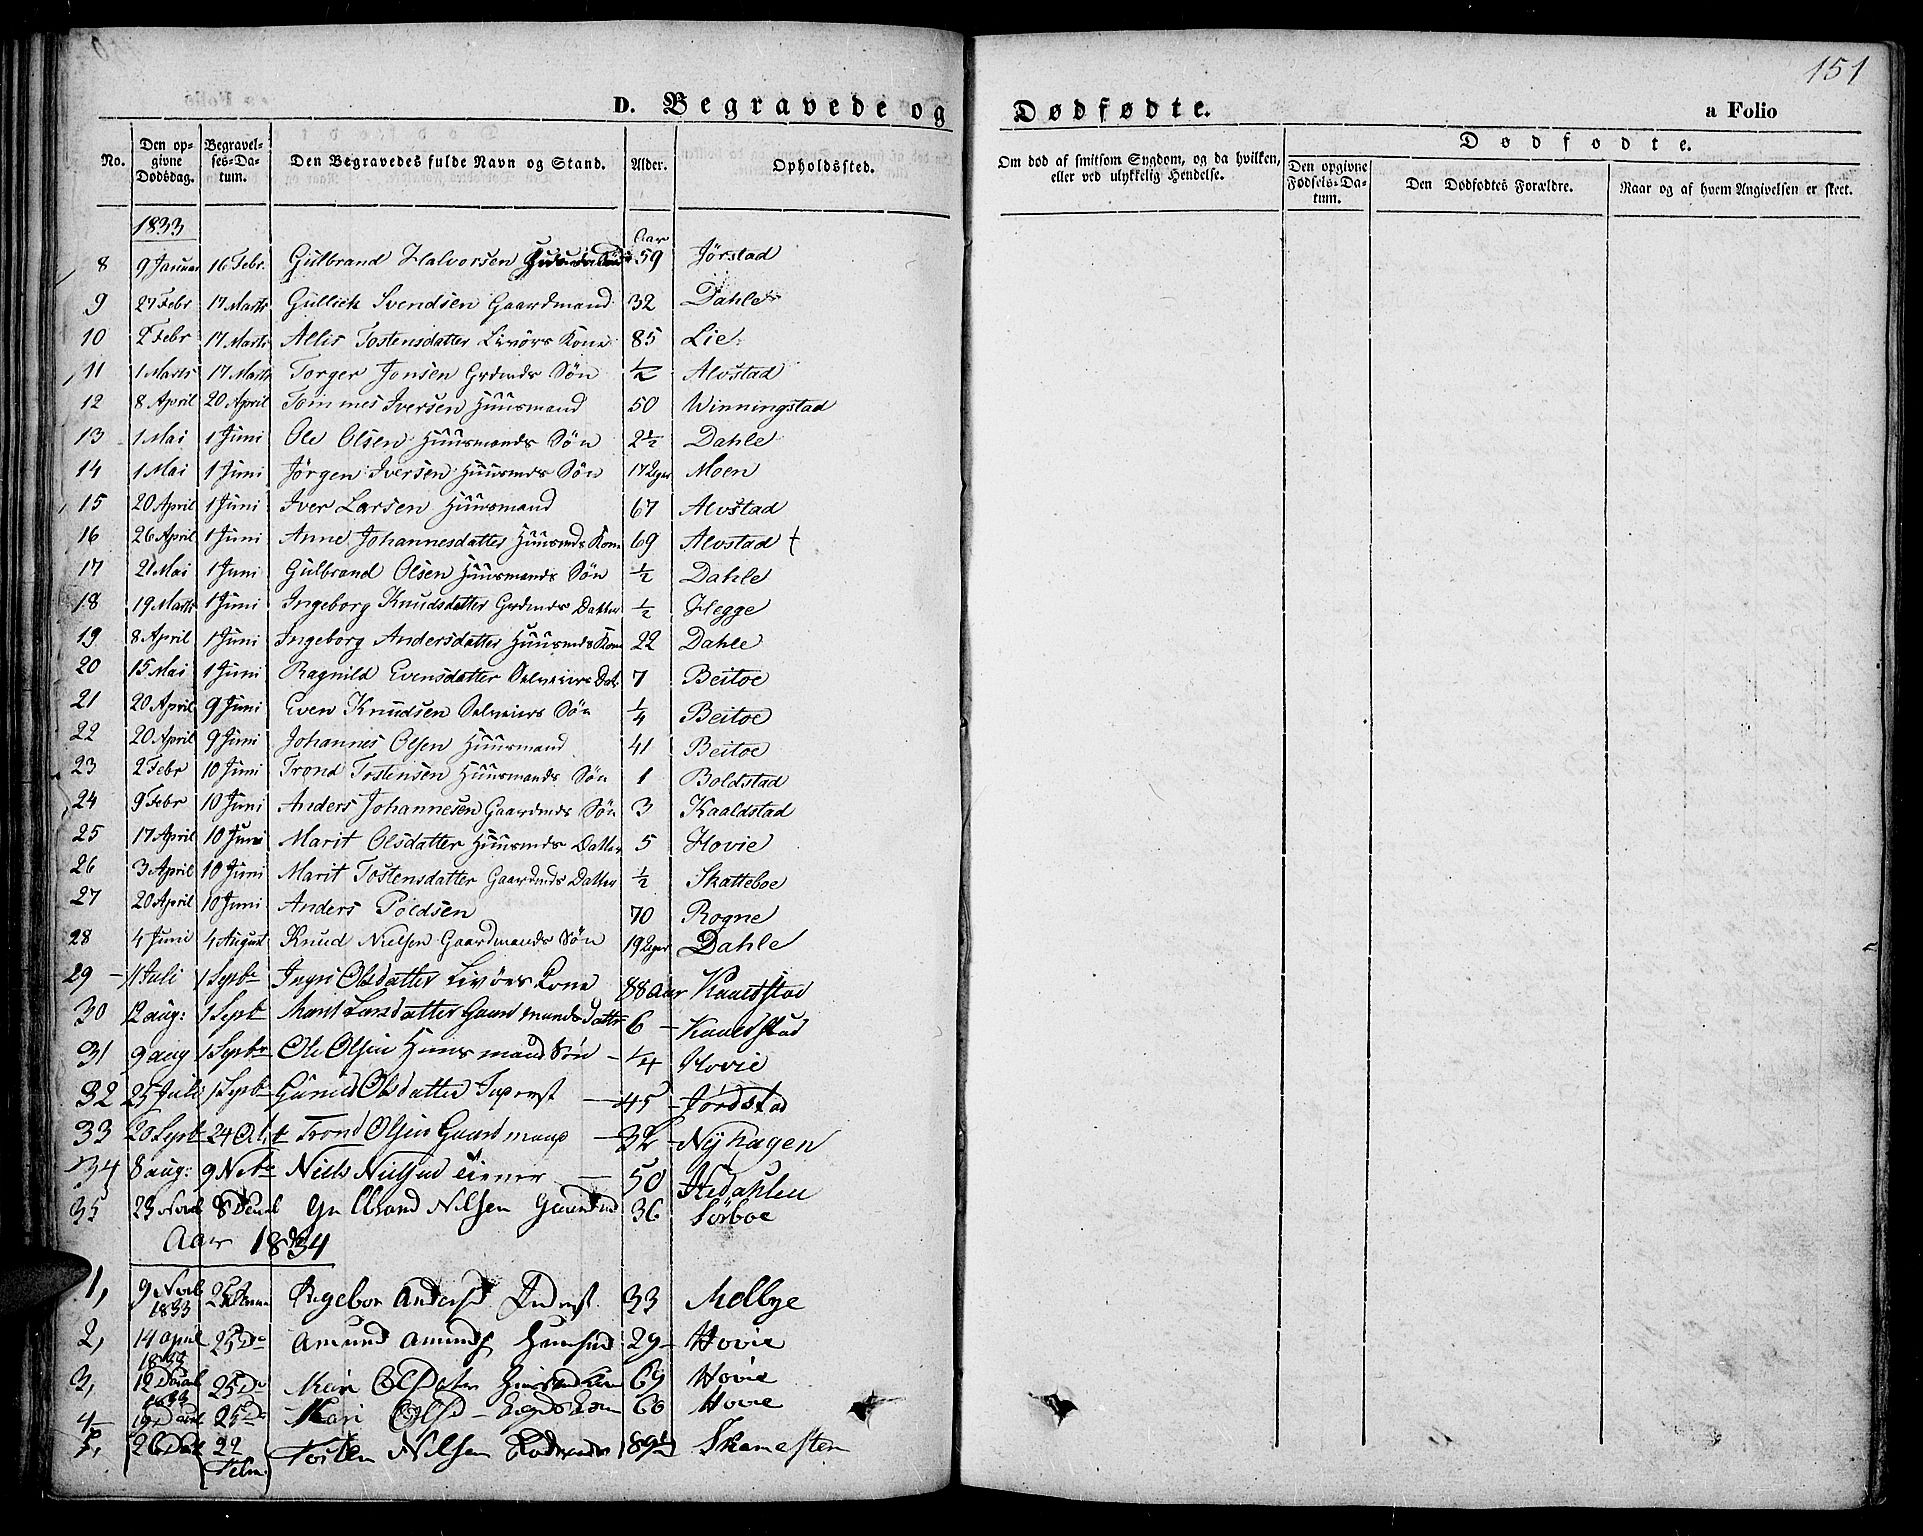 151
D. Begravede og Dødfødte. a Folio
No. Den opgivne Dødsdag. Begravelses-Datum. Den Begravedes fulde Navn og Stand. Alder. Opholdssted. Om død af smitsom Sygdom, og da hvilken, eller ved ulykkelig Hendelse. Dødfødte. Den opgivne Fødsels-Datum. Den Dødfødtes Forældre. Naar og af hvem Angivelsen er skeet.
1833
Aar
8 9 Januar 16 Febr. Gulbrand Halvorsen 59 Jørstad
9 27 Febr 17 Marts Gullich Svendsen Gaardmand 32 Dahle
10 2 Febr 17 Marts Allis Tostensdatter Livørs Kone 85 Lie
11 1 Marts 17 Marts Torger Jonsen Grdmds Søn ½ Alvstad
12 8 April 20 April Tommes Iversen Huusmand 50 Winningstad
13 1 Mai 1 Juni Ole Olsen Huusmands Søn 2½ Dahle
14 1 Mai 1 Juni Jörgen Iversen Huusmds Søn 17 Uger Moen
15 20 April 1 Juni Iver Larsen Huusmand 67 Alvstad
16 26 April 1 Juni Anne Johannesdatter Huusmds Kone 69 Alvstad †
17 2 Mai 1 Juni Gulbrand Olsen Huusmands Søn ½ Dahle
18 19 Marts 1 Juni Ingeborg Knudsdatter Grdmds Datter ½ Hegge
19 8 April 1 Juni Ingeborg Andersdatter Huusmds Kone 22 Dahle
20 15 Mai 1 Juni Ragnild Evensdatter Selveiers Dat 7 Beitoe
21 20 April 9 Juni Even Knudsen Selveiers Søn ¼ Beitoe
22 20 April 9 Juni Johannes Olsen Huusmand 41 Beitoe
23 2 Febr 10 Juni Trond Tostensen Huusmands Søn 1 Boldstad
24 9 Febr 10 Juni Anders Johannesen Gaardmds Søn 3 Kaaldstad
25 17 April 10 Juni Marit Olsdatter Huusmds Datter 5 Hovie
26 3 April 10 Juni Marit Tostensdatter Gaardmds Datter ½ Skatteboe
27 20 April 10 Juni Anders Poldsen 70 Rogne
28 4 Juni 4 August Knud Nielsen Gaardmands Søn 19 Uger Dahle
29 - 11 Juli 1 Septbr Ingri Olsdatter Livörs Kone 88 Aar Kaaldstad
30 12 aug: 1 Septbr Marit Larsdatter Gaardmands datter 6 - Kaaldstad
31 9 aug 1 Septbr Ole Olsen Huusmand Søn - ¼ Hovie
32 25 Juli 1 Septbr Gunild Olsdatter - 45 - Jørdstad
33 20 Septbr 24 Oct Trond Olsen Gaardmand - 32 - Nÿhagen
34 8 aug: 9 Nvbr Niels Nielsen - 50 Hedahlen
35 23 Novb 8 Decmb Gulbrand Nilsen Gaardmd 36 Sörboe
Aar 1834
1, 9 Novb 1833 25 Ingebor Andersd Inderst 33 Melbye
2, 14 april 1833 25 Do Amund Amunds Huusmd 29 - Hovie
3, 12 1833 25 Do Mari Olsdater Huusmd Kone 69 Hovie
4 - 19 25 Do Mari Olsd - Kone 60 Hovie
5, 26 22 Febr Tosten Nilsen 89½ Skamesten